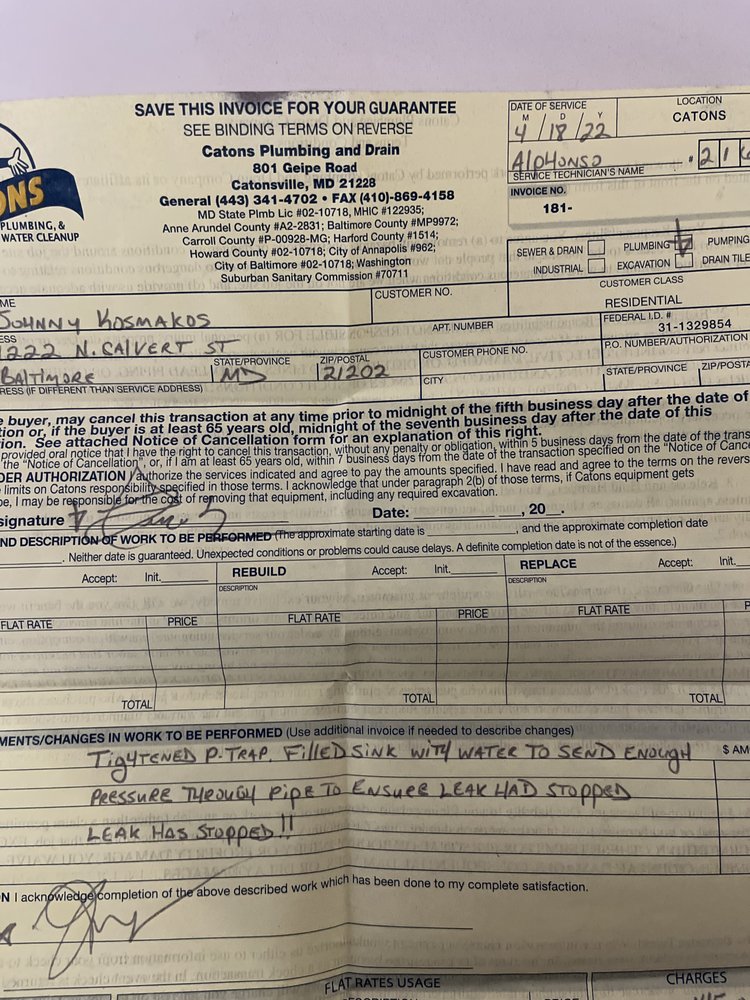 SAVE THIS INVOICE FOR YOUR GUARANTEE
SEE BINDING TERMS ON REVERSE
Catons Plumbing and Drain
801 Geipe Road
Catonsville, MD 21228
General (443) 341-4702 • FAX (410)-869-4158
MD State Plmb Lic #02-10718, MHIC #122935;
Anne Arundel County #A2-2831; Baltimore County #MP9972;
Carroll County #P-00928-MG; Harford County #1514;
Howard County #02-10718; City of Annapolis #962;
City of Baltimore #02-10718; Washington
Suburban Sanitary Commission #70711
ONS
PLUMBING, &
WATER CLEANUP
DATE OF SERVICE
M D Y
4/18/22
LOCATION
CATONS
ALPHONSO
SERVICE TECHNICIAN'S NAME
INVOICE NO.
181-
SEWER & DRAIN PLUMBING PUMPING
INDUSTRIAL EXCAVATION DRAIN TILE
CUSTOMER NO.
CUSTOMER CLASS
RESIDENTIAL
ME
JOHNNY KOSMAKOS
APT. NUMBER
FEDERAL I.D. #
31-1329854
ESS
1222 N. CALVERT ST
CUSTOMER PHONE NO.
P.O. NUMBER/AUTHORIZATION
STATE/PROVINCE ZIP/POSTAL
BALTIMORE MD 21202
CITY STATE/PROVINCE ZIP/POSTA
RESS (IF DIFFERENT THAN SERVICE ADDRESS)
e buyer, may cancel this transaction at any time prior to midnight of the fifth business day after the date of
tion or, if the buyer is at least 65 years old, midnight of the seventh business day after the date of this
ion. See attached Notice of Cancellation form for an explanation of this right.
provided oral notice that I have the right to cancel this transaction, without any penalty or obligation, within 5 business days from the date of the trans
the "Notice of Cancellation", or, if I am at least 65 years old, within 7 business days from the date of the transaction specified on the "Notice of Canc
DER AUTHORIZATION I authorize the services indicated and agree to pay the amounts specified. I have read and agree to the terms on the revers
limits on Catons responsibility specified in those terms. I acknowledge that under paragraph 2(b) of those terms, if Catons equipment gets
pe, I may be responsible for the cost of removing that equipment, including any required excavation.
signature Date: , 20 .
ND DESCRIPTION OF WORK TO BE PERFORMED (The approximate starting date is , and the approximate completion date
. Neither date is guaranteed. Unexpected conditions or problems could cause delays. A definite completion date is not of the essence.)
Accept: Init. REBUILD Accept: Init. REPLACE Accept: Init.
DESCRIPTION DESCRIPTION
FLAT RATE PRICE FLAT RATE PRICE FLAT RATE P
TOTAL TOTAL TOTAL
MENTS/CHANGES IN WORK TO BE PERFORMED (Use additional invoice if needed to describe changes)
TIGHTENED P-TRAP. FILLED SINK WITH WATER TO SEND ENOUGH
$ AM
PRESSURE THROUGH PIPE TO ENSURE LEAK HAD STOPPED
LEAK HAS STOPPED!!
ON I acknowledge completion of the above described work which has been done to my complete satisfaction.
FLAT RATES USAGE CHARGES